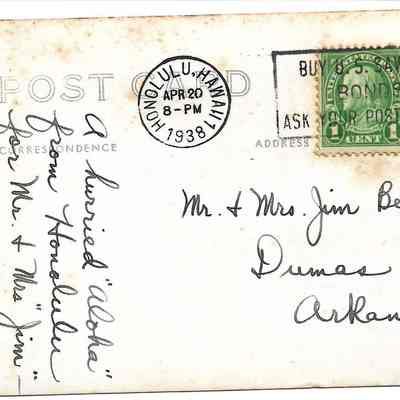 POST CARD
HONOLULU, HAWAII
APR 20
8-PM
1938
BUY U.S.
BOND
ASK YOUR POST
1 CENT 1
CORRESPONDENCE
ADDRESS
A hurried "Aloha"
from Honolulu
for Mr. + Mrs "Jim" -
Mr. + Mrs. Jim Be
Dumas
Arkan